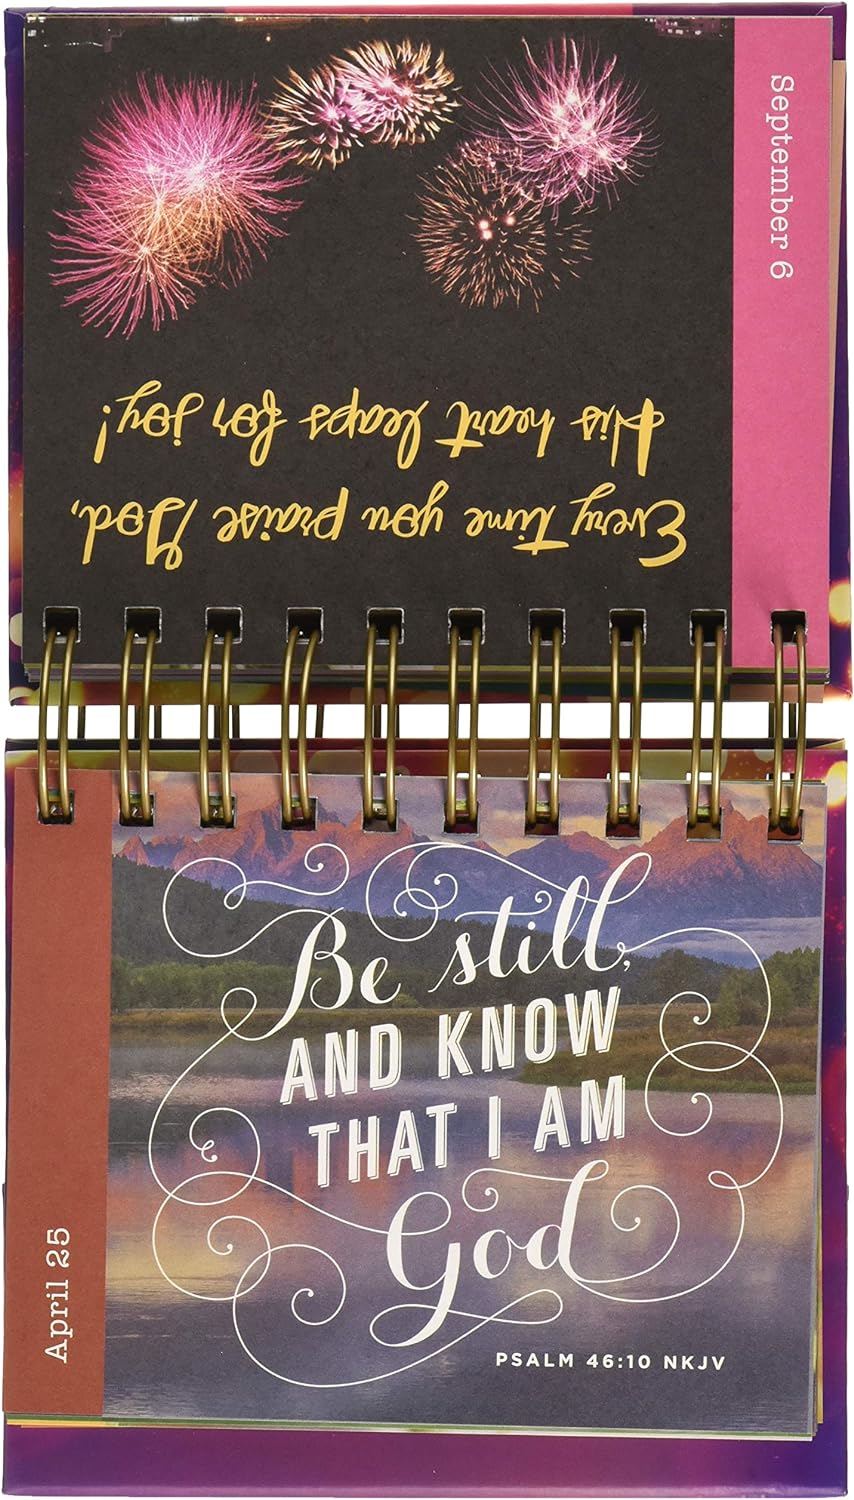 September 6
Every time you praise God,
His heart leaps for joy!
Be still,
AND KNOW
THAT I AM
God
PSALM 46:10 NKJV
April 25